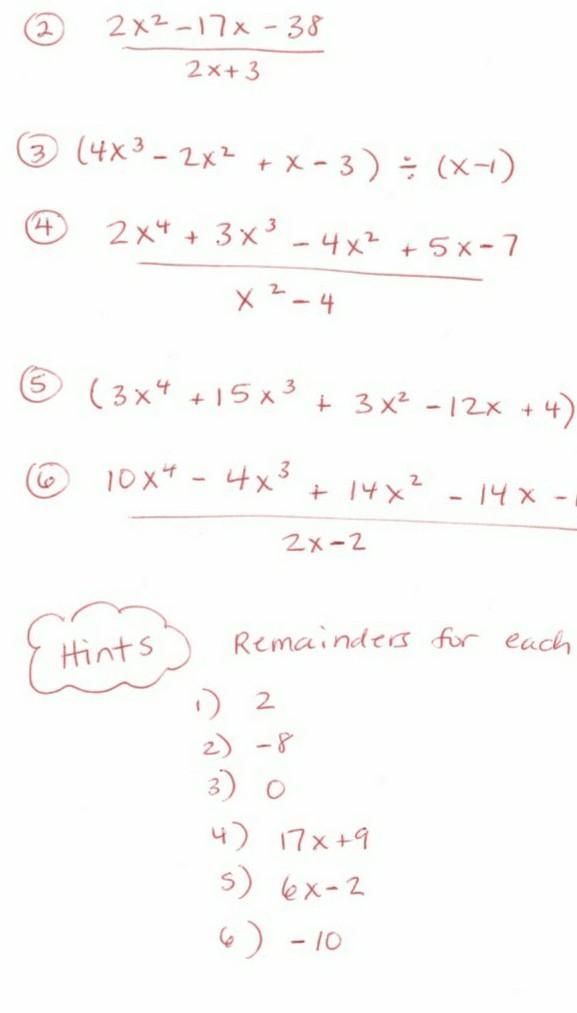 ② 2x² - 17x - 38
2x + 3
③ (4x³ - 2x² + x - 3) ÷ (x - 1)
④ 2x⁴ + 3x³ - 4x² + 5x - 7
x² - 4
⑤ (3x⁴ + 15x³ + 3x² - 12x + 4)
⑥ 10x⁴ - 4x³ + 14x² - 14x -
2x - 2
Hints Remainders for each
1) 2
2) -8
3) 0
4) 17x + 9
5) 6x - 2
6) -10